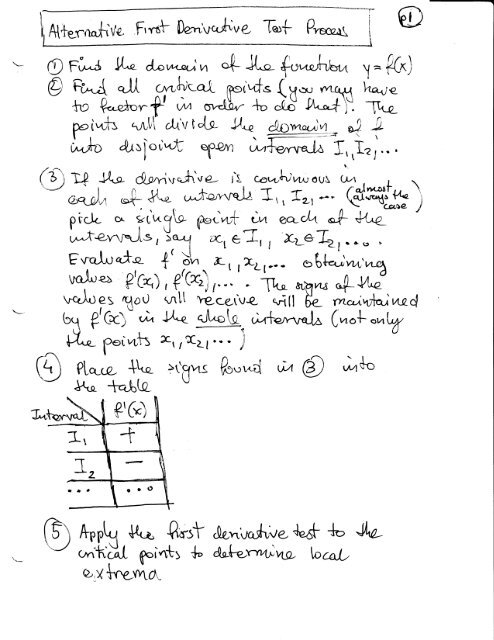 p1
Alternative First Derivative Test Process
① Find the domain of the function y = f(x)
② Find all critical points (you may have
to factor f' in order to do that). The
points will divide the domain of f
into disjoint open intervals I₁, I₂, ...
③ If the derivative is continuous in
each of the intervals I₁, I₂, ... (almost always the case)
pick a single point in each of the
intervals, say x₁ ∈ I₁, x₂ ∈ I₂, ....
Evaluate f' on x₁, x₂, ... obtaining
values f'(x₁), f'(x₂), .... The signs of the
values you will receive will be maintained
by f'(x) in the whole intervals (not only
the points x₁, x₂, ...)
④ Place the signs found in ③ into
the table
Interval f'(x)
I₁ +
I₂ −
... ...
⑤ Apply the first derivative test to the
critical points to determine local
extrema